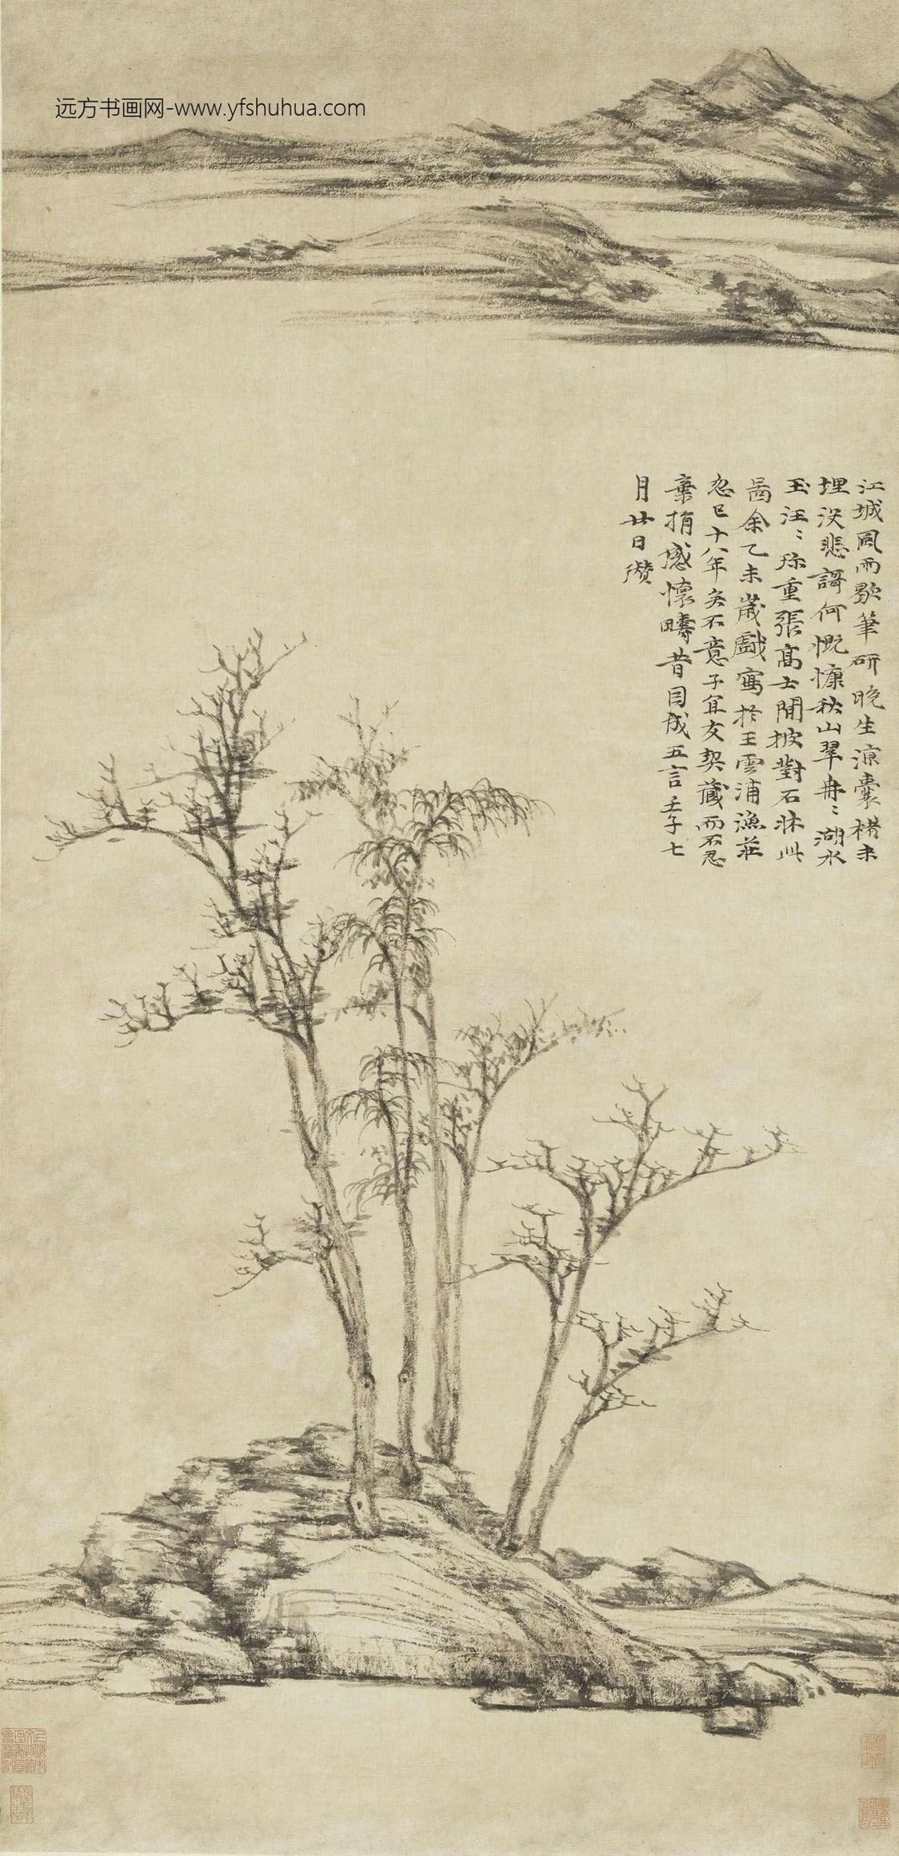 远方书画网-www.yfshuhua.com
江城風雨歇筆研晚生涼囊楮未
埋没悲謌何慨慷秋山翠冉〻湖水
玉汪〻珍重張高士閒披對石牀此
啚余乙未歲戲寫於王雲浦漁莊
忽已十八年矣不意子宜友契藏而不忍
棄捐感懷疇昔因成五言壬子七
月廿日瓚